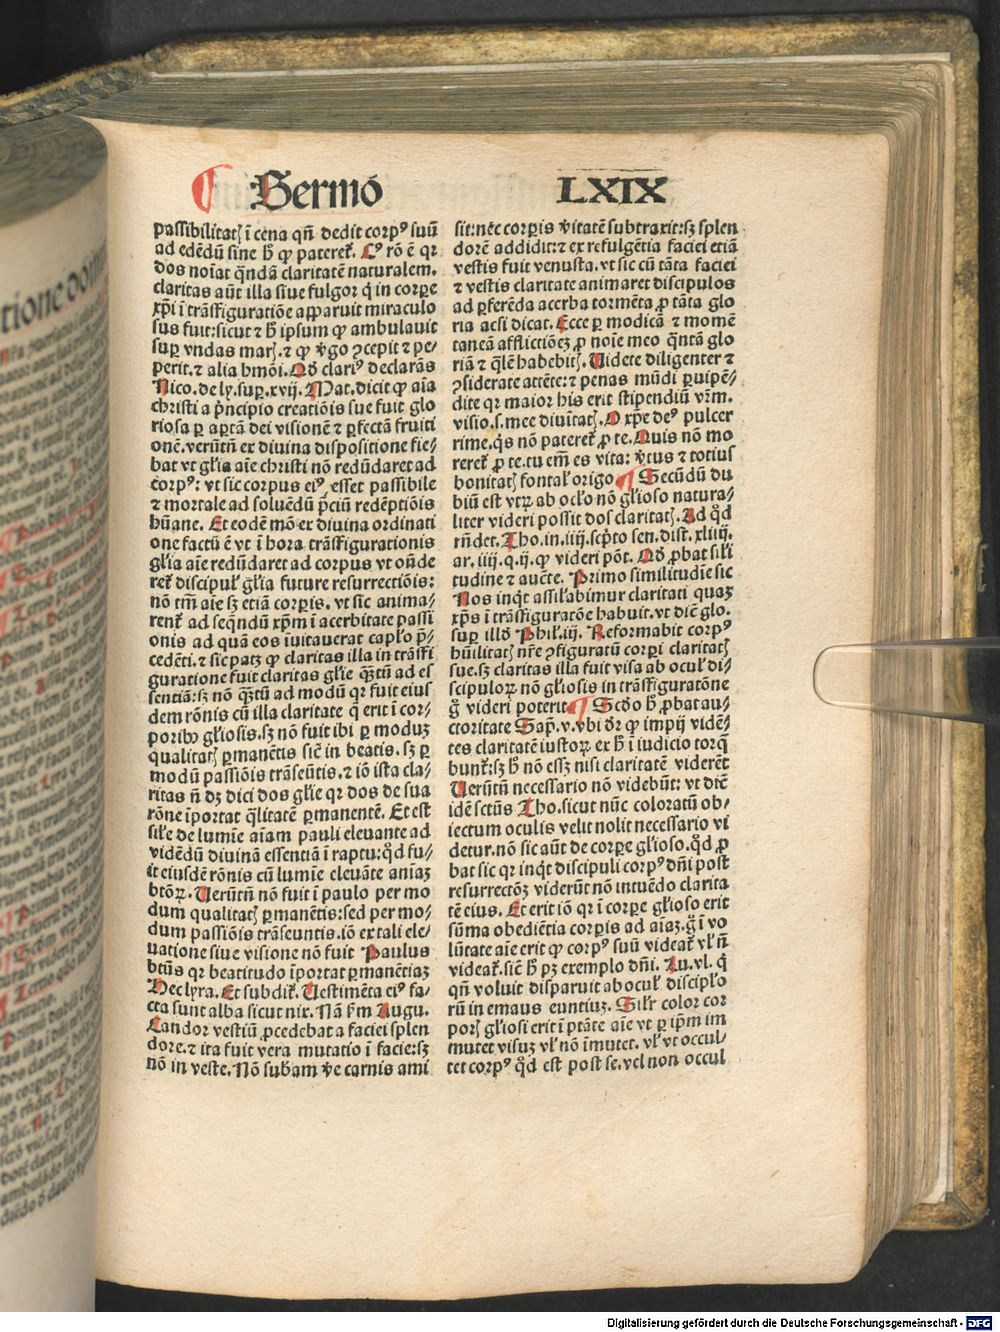 ¶ Sermō LXIX
passibilitatꝫ ī cena qn̄ dedit corpꝰ suū
ad edēdū sine h̄ ꝙ pateret᷑. Cꝰ rō ē qꝛ
dos noīat qn̄dā claritatē naturalem.
claritas aūt illa siue fulgor q̇ in corꝑe
xp̄i ī trāsfiguratiōe apparuit miraculo
sus fuit: sicut ⁊ h̄ ipsum ꝙ ambulauit
suꝑ vndas marꝭ. ⁊ ꝙ v̄go ꝯcepit ⁊ pe-
perit. ⁊ alia hmōi. Qḋ clariꝰ declarās
Nico. de ly. suꝑ. xvij. Mat. dicit ꝙ aīa
christi a p̄ncipio creatiōis sue fuit glo
riosa ꝑ aꝑtā dei visionē ⁊ ꝑfectā fruiti
onē. verūtn̄ ex diuina dispositione fie-
bat vt gl̄ia aīe christi nō redūdaret ad
corpꝰ: vt sic corpus eiꝰ esset passibile
⁊ mortale ad soluēdū p̄ciū redēptiōis
hūane. Et eodē mō ex diuina ordinati
one factū ē vt ī hora trāsfigurationis
gl̄ia aīe redūdaret ad corpus vt on̄de
ret᷑ discipul̄ gl̄ia future resurrectiōis:
nō tm̄ aīe sꝫ etiā corꝑis. vt sic anima-
rent᷑ ad seqn̄dū xp̄m ī acerbitate passi
onis ad quā eos īuitauerat cap̄lo p̄-
cedēti. ⁊ sic patꝫ ꝙ claritas illa in trāsfi
guratione fuit claritas gl̄ie qꝫtū ad es
sentiā: sꝫ nō qꝫtū ad modū qꝛ fuit eius
dem rōnis cū illa claritate q̄ erit ī cor-
poribꝰ gl̄iosis. sꝫ nō fuit ibi ꝑ moduꝫ
qualitatꝭ ꝑmanētis sic̄ in beatis. sꝫ ꝑ
modū passiōis trāseūtis. ⁊ iō ista cla-
ritas n̄ dꝫ dici dos gl̄ie qꝛ dos de sua
rōne īportat q̄litatē ꝑmanentē. Et est
sil̄e de lumīe aīam pauli eleuante ad
vidēdū diuinā essentiā ī raptu: qḋ fu-
it eiusdē rōnis cū lumīe eleuāte aniaꝫ
btōꝝ. Verūtn̄ nō fuit ī paulo per mo
dum qualitatꝭ ꝑmanētis: sed per mo-
dum passiōis trāseuntis. iō ex tali ele-
uatione siue visione nō fuit Paulus
btūs qꝛ beatitudo īportat ꝑmanētiaꝫ
Hec lyra. Et subdit᷑. Vestimēta eiꝰ fa-
cta sunt alba sicut nix. Nā ẜm Augu.
Candor vestiū ꝓcedebat a faciei splen
dore. ⁊ ita fuit vera mutatio ī facie: sꝫ
nō in veste. Nō subam v̄e carnis ami
sit: nec corꝑis v̄itatē subtraxit: sꝫ splen
dorē addidit: ⁊ ex refulgētia faciei etiā
vestis fuit venusta. vt sic cū tāta faciei
⁊ vestis claritate animaret discipulos
ad ꝑferēda acerba tormēta ꝓ tāta glo
ria acsi dicat. Ecce ꝑ modicā ⁊ momē
taneā afflictiōeꝫ ꝓ noīe meo q̄ntā glo
riā ⁊ q̄lē habebitꝭ. Videte diligenter ⁊
ꝯsiderate attēte: ⁊ penas mūdi ꝑuipē-
dite qꝛ maior his erit stipendiū vr̄m.
visio. s. mee diuītatꝭ. O xp̄e deꝰ pulcer
rime. q̇s nō pateret᷑ ꝓ te. Quis nō mo
reret᷑ ꝓ te. tu em̄ es vita: v̄tus ⁊ totius
bonitatꝭ fontal̄ origo ¶ Secūdū du
biū est vtꝝ ab oc̄lo nō gl̄ioso natura-
liter videri possit dos claritatꝭ. Ad qḋ
rn̄det. Tho. in. iiij. sc̄pto sen. dist. xliiij.
ar. iiij. q. ij. ꝙ videri pōt. Qḋ ꝓbat sil̄i
tudine ⁊ aucte. Primo similitudīe sic
Nos inq̇t assil̄abimur claritati quaꝫ
xp̄s ī trāsfiguratōe habuit. vt dic̄ glo.
suꝑ illḋ Phil̄. iij. Reformabit corpꝰ
hūilitatꝭ nr̄e ꝯfiguratū corꝑi claritatꝭ
sue. sꝫ claritas illa fuit visa ab ocul̄ di-
scipuloꝝ nō gl̄iosis in trāsfiguratōne
g̊ videri poterit ¶ Scḋo h̄ ꝓbat au-
ctoritate Sap̄. v. vbi dr̄ ꝙ impij vidē-
tes claritatē iustoꝝ ex h̄ ī iudicio torq̄
bunt᷑: sꝫ h̄ nō essꝫ nisi claritatē viderēt
Verūtn̄ necessario nō videbūt: vt dic̄
idē sctūs Tho. sicut nūc coloratū ob-
iectum oculis velit nolit necessario vi
detur. nō sic aūt de corꝑe gl̄ioso. qḋ ꝓ
bat sic qꝛ inq̇t discipuli corpꝰ dn̄i post
resurrectōꝫ viderūt nō intuēdo clarita
tē eius. Et erit iō qꝛ ī corꝑe gl̄ioso erit
sūma obediētia corꝑis ad aīaꝫ. g̊ ī vo
lūtate aīe erit ꝙ corpꝰ suū videat᷑ vl̄ n̄
videat᷑. sic̄ h̄ pꝫ exemplo dn̄i. Lu. vl. q̇
qn̄ voluit disparuit ab ocul̄ discipl̄o
rū in emaus euntiuꝫ. Sil̄r color cor
porꝭ gl̄iosi erit ī p̄tāte aīe vt ꝑ ip̄m im
mutet visuꝫ vl̄ nō īmutet. vl̄ vt occul-
tet corpꝰ qḋ est post se. vel non occul
Digitalisierung gefördert durch die Deutsche Forschungsgemeinschaft - DFG